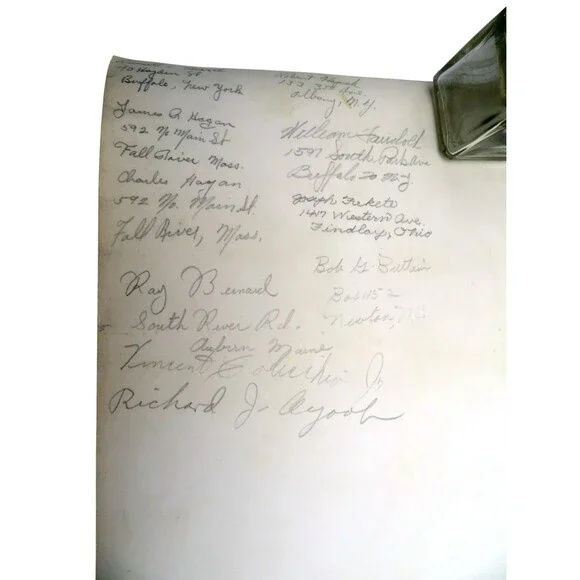 70 Hayden St
Buffalo, New York
James A. Hagan
592 No Main St
Fall River Mass.
Charles Hagan
592 No. Main St.
Fall River, Mass.
Ray Bernard
South River Rd.
Auburn Maine
Vincent Jr
Richard J. Ayoob
Robert
153 Ave.
Albany, N.Y.
William
1591 South Park Ave
Buffalo 20 N.Y.
Joseph Fekete
1417 Western Ave.
Findlay, Ohio
Bob G. Britain
Box 152
Newton, N.C.